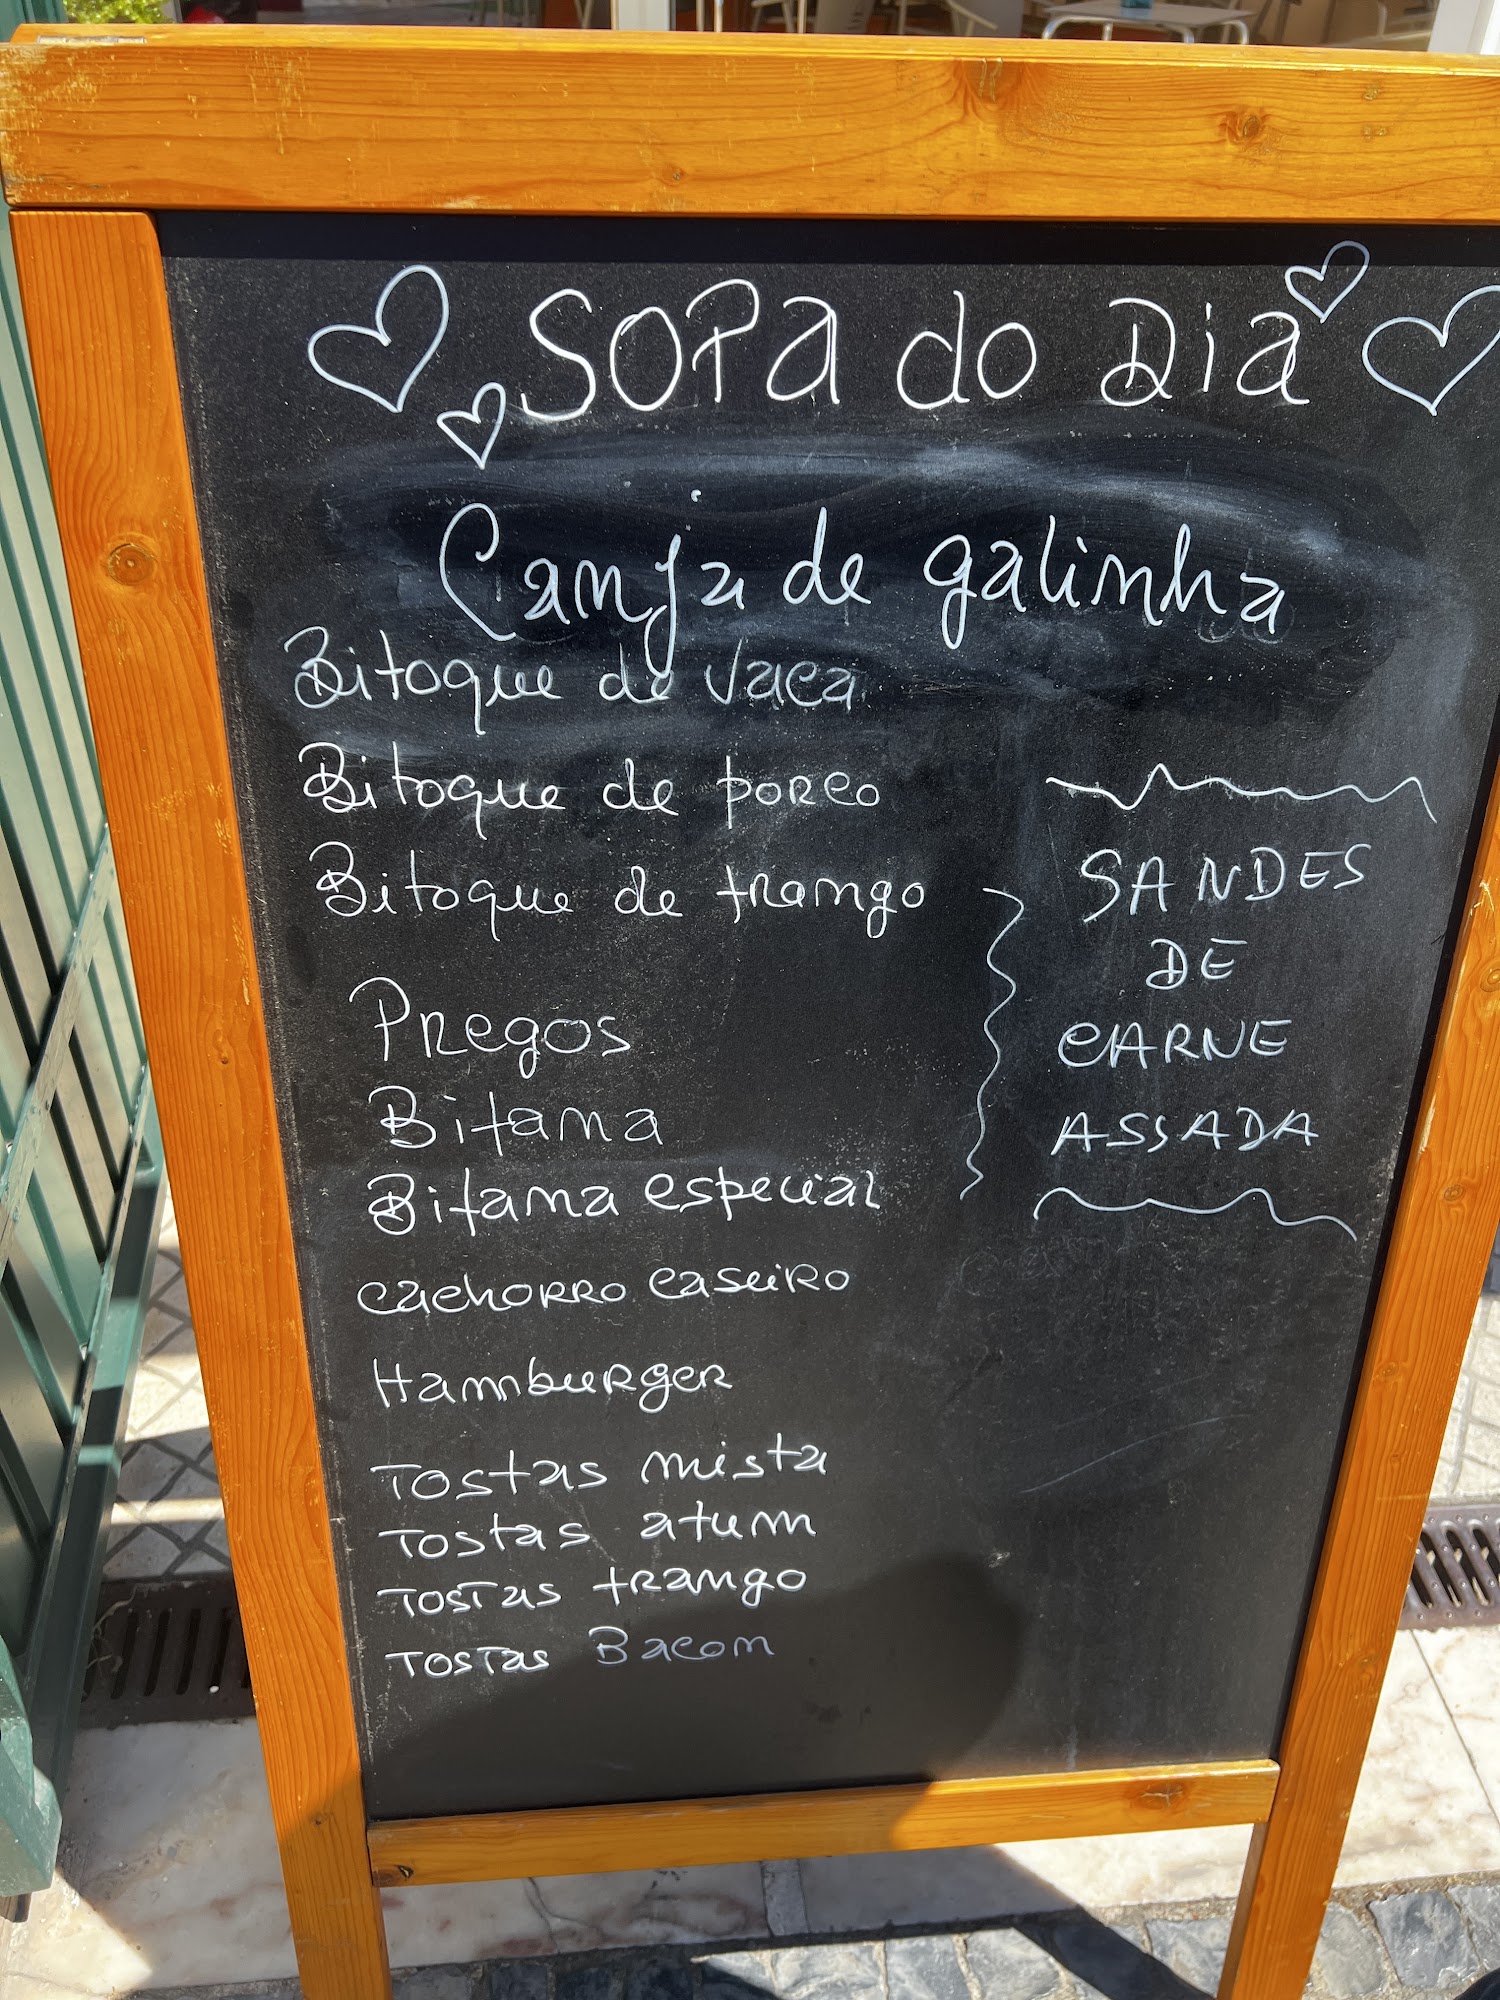 SOPA do Dia
Canja de galinha
Bitoque de Vaca
Bitoque de porco
Bitoque de frango
Pregos
Bifana
Bifana especial
cachorro caseiro
Hamburger
Tostas mista
Tostas atum
Tostas frango
Tostas Bacom
SANDES
DE
CARNE
ASSADA